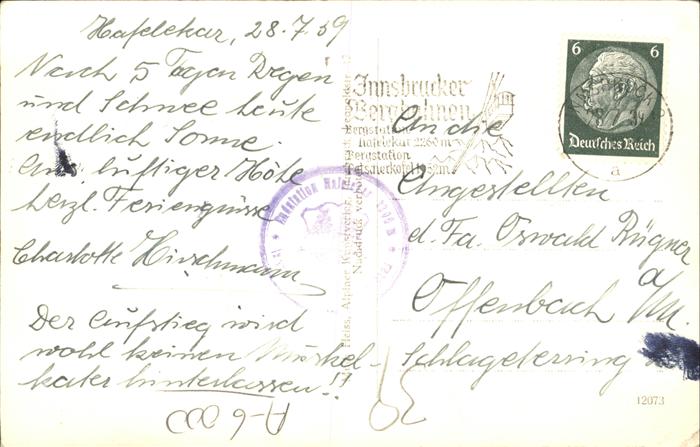 Hafelekar, 28.7.39
Nach 5 Tagen Regen
und Schnee heute
endlich Sonne.
Aus luftiger Höhe
herzl. Feriengrüsse
Charlotte Hirschmann
Der Aufstieg wird
wohl keinen Muskel-
kater hinterlassen!!
A-6000
Innsbrucker
Bergbahnen
Bergstation
Hafelekar 2260 m
Bergstation
Patscherkofel
6 6
Deutsches Reich
a
Hafelekar
An die
Angestellten
d. Fa. Oswald Rügner
Offenbach a/M.
Schlageterring
12073